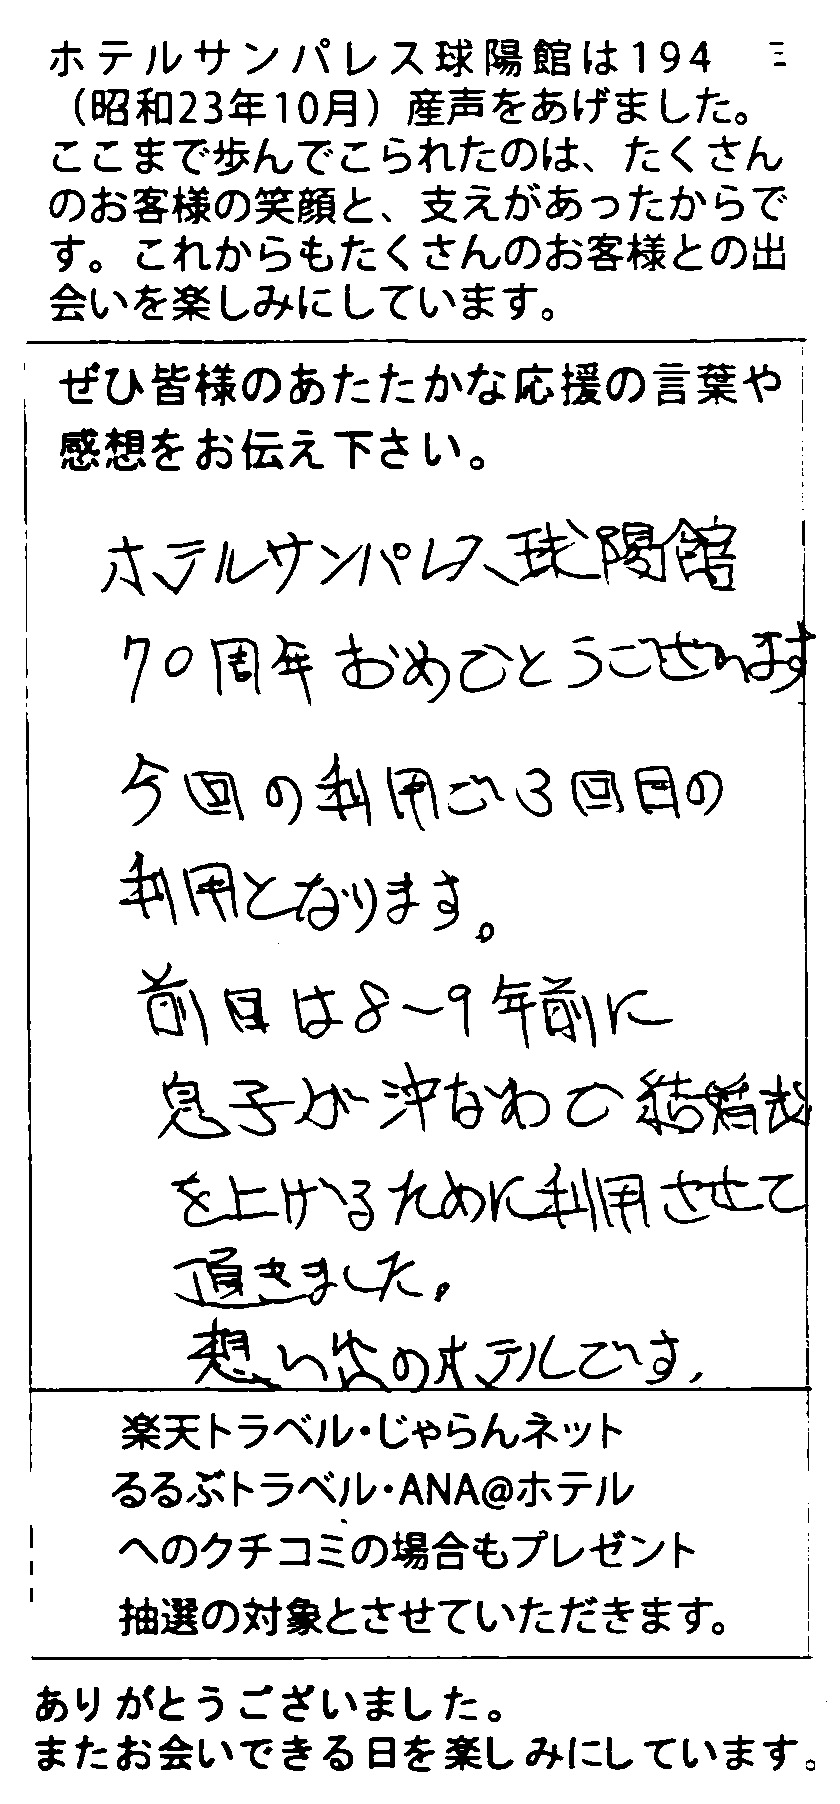 ホテルサンパレス球陽館は194
(昭和23年10月)産声をあげました。
ここまで歩んでこられたのは、たくさん
のお客様の笑顔と、支えがあったからで
す。これからもたくさんのお客様との出
会いを楽しみにしています。
ぜひ皆様のあたたかな応援の言葉や
感想をお伝え下さい。
ホテルサンパレス球陽館
70周年おめでとうございます
今回の利用で3回目の
利用となります。
前回は8〜9年前に
息子が沖なわで結婚式
を上げるために利用させて
頂きました。
想い出のホテルです。
楽天トラベル・じゃらんネット
るるぶトラベル・ANA@ホテル
へのクチコミの場合もプレゼント
抽選の対象とさせていただきます。
ありがとうございました。
またお会いできる日を楽しみにしています。